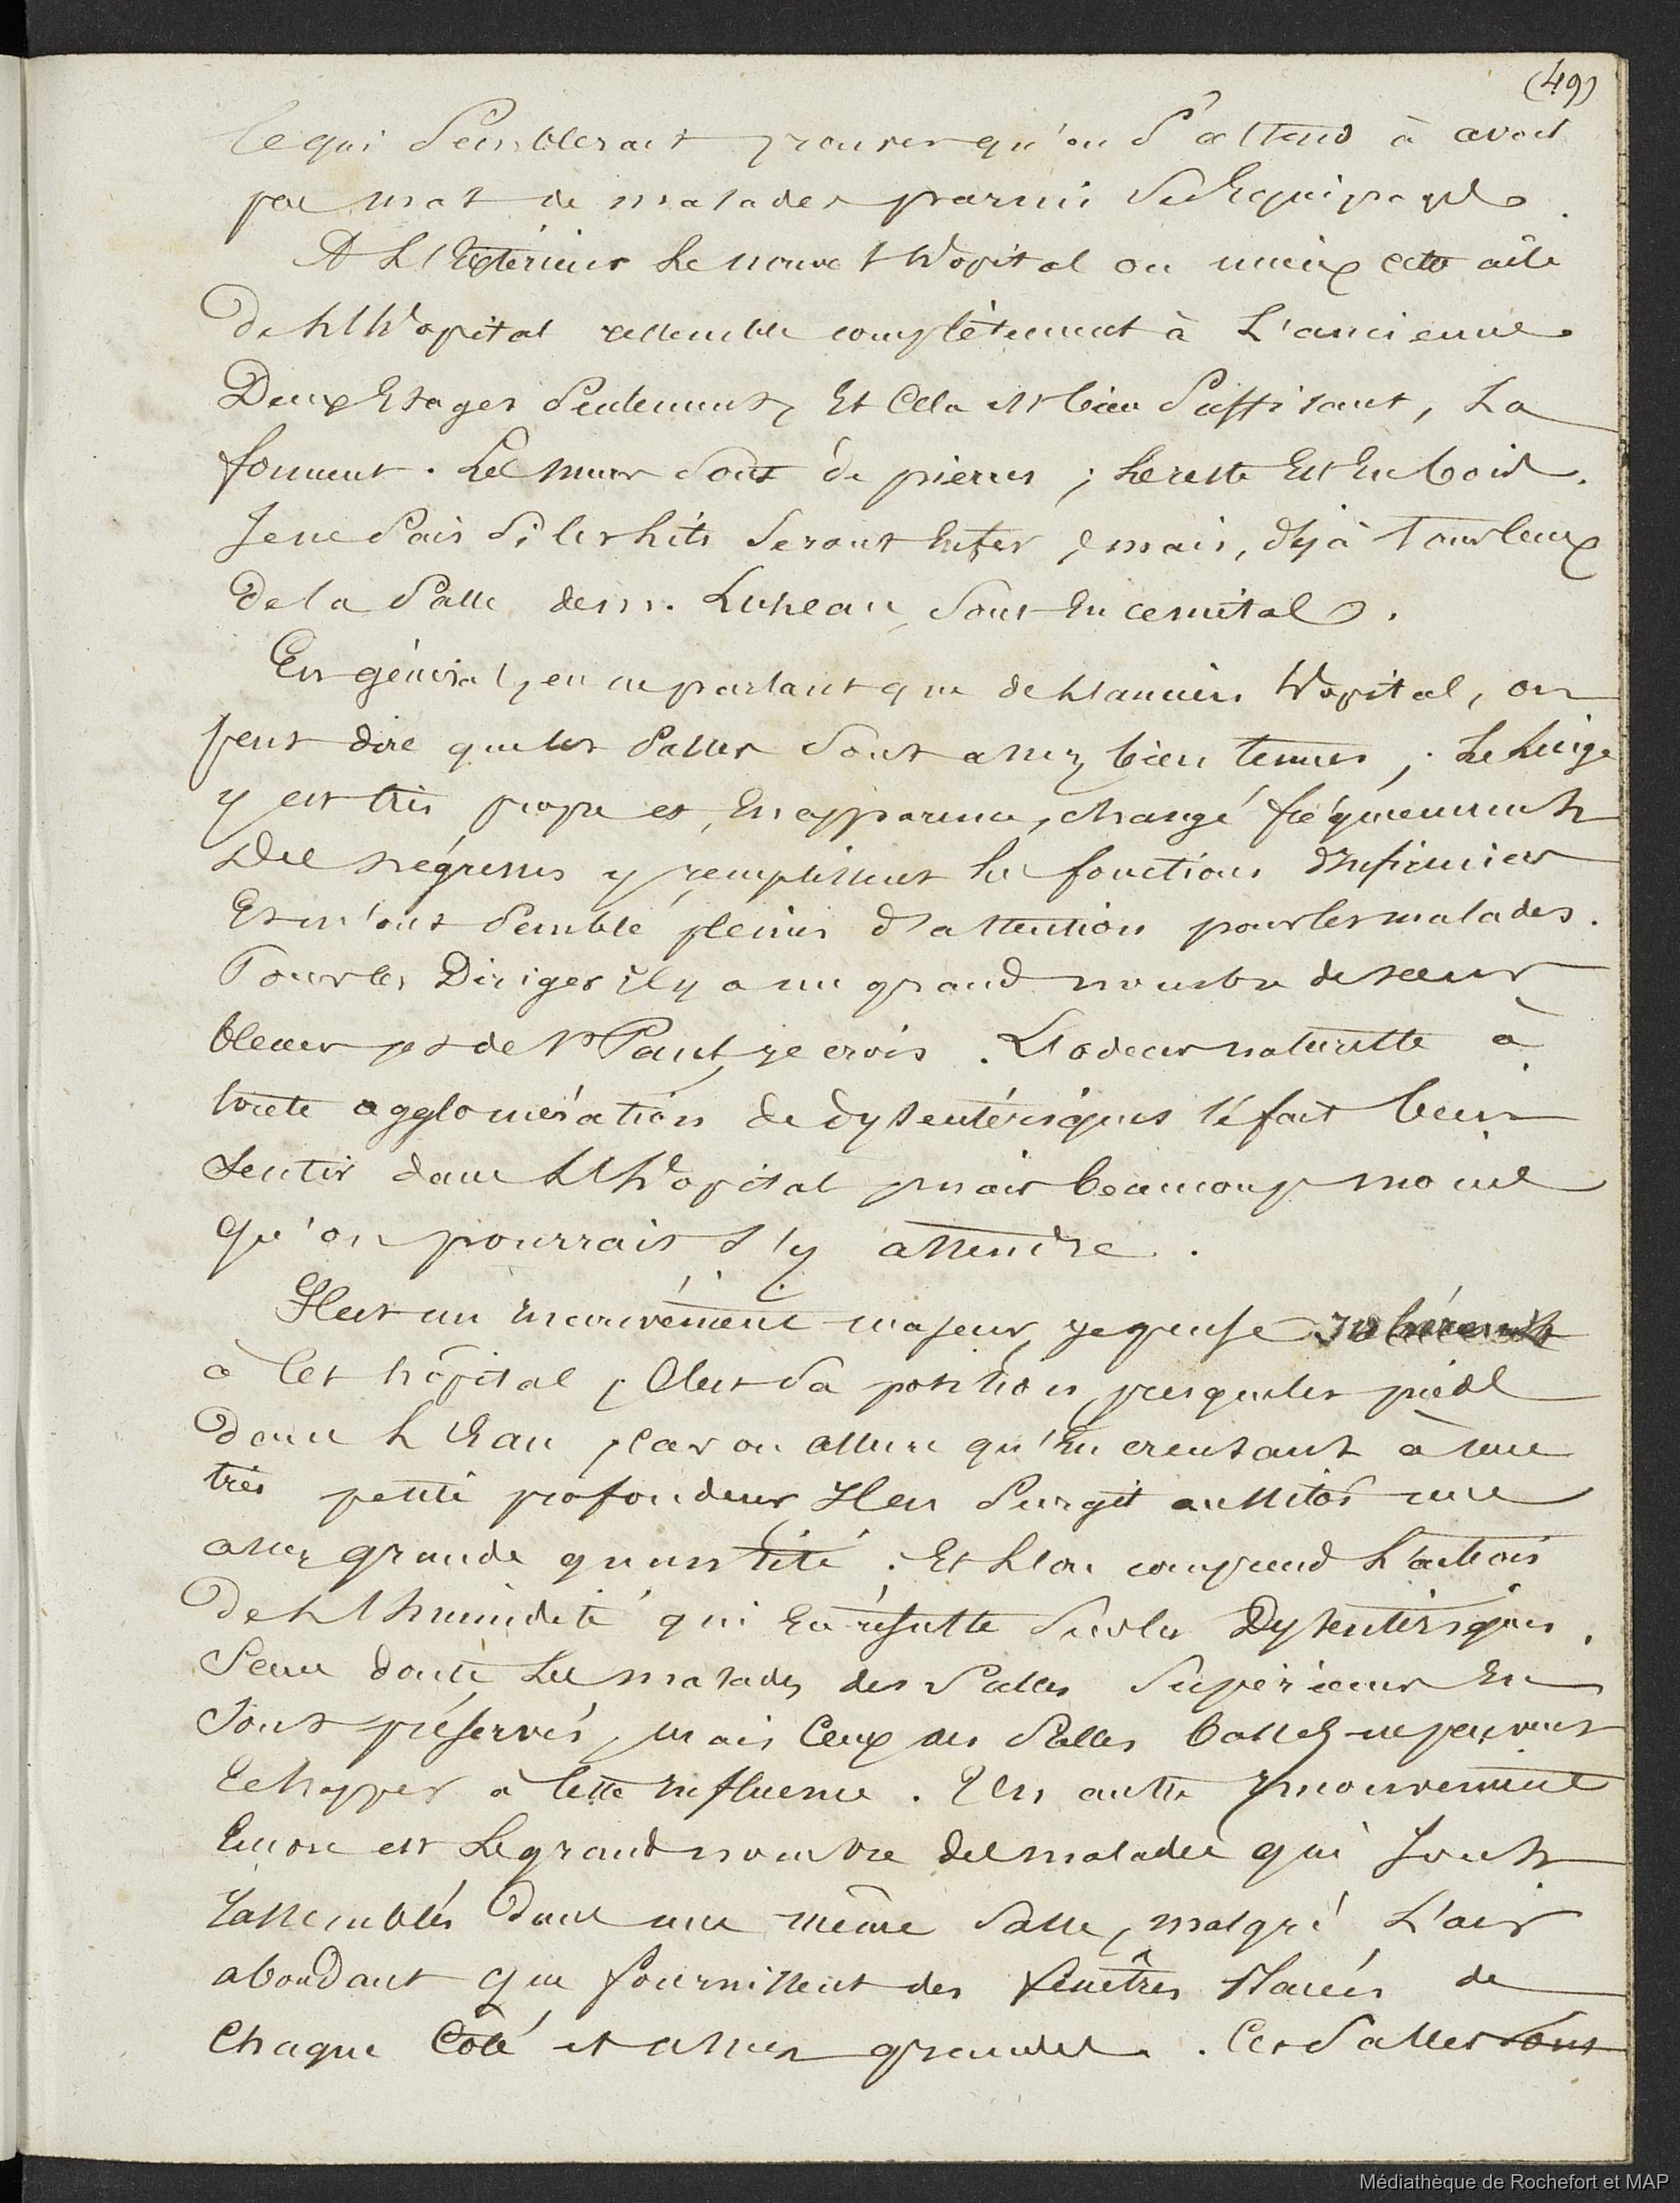 (49)
Ce qui Semblerait prouver qu'on S'attend à avoir
pas mal de malades parmi Ses Equipages.
A L'Extérieur Le nouvel Hôpital ou mieux cette aîle
De L'Hôpital ressemble complètement à L'ancienne
Deux Etages Seulement, Et Cela est bien Suffisant, La
forment. Les murs Sont de pierres ; Le reste Est En bois.
Je ne Sais Si les Lits Seront En fer, mais, déjà Tous ceux
De la Salle de m. Luneau, Sont En ce métal.
En général, en ne parlant que de L'ancien Hôpital, on
peut dire que les Salles Sont assez bien tenues ; Le Linge
y est très propre et, En apparence, changé fréquemment
Des négresses y remplissent les fonctions d'Infirmiers
Et m'ont Semblé pleines d'attention pour les malades.
Pour les Diriger il y a un grand nombre de sœurs
bleues, et de St Paul, je crois. L'odeur naturelle à
toute agglomération de dyssentériques se fait bien
Sentir dans L'Hôpital mais beaucoup moins
qu'on pourrait s'y attendre.
Il est un inconvénient majeur, je pense
à Cet hôpital, C'est Sa position, presque les pieds
Dans L'Eau, car on assure qu'En creusant à une
très petite profondeur, Il en Surgit aussitôt une
assez grande quantité. Et L'on comprend L'action
De L'humidité qui En résulte Sur les Dyssentériques.
Sans doute, Les malades des Salles Supérieures En
Sont préservés, mais Ceux des Salles basses ne peuvent
Echapper à Cette Influence. Un autre Inconvénient
Encore est Le grand nombre des malades qui Sont
rassemblés Dans une même Salle, malgré L'air
abondant que fournissent des fenêtres placées de
Chaque Côté et assez grandes. Ces Salles Sont
Médiathèque de Rochefort et MAP